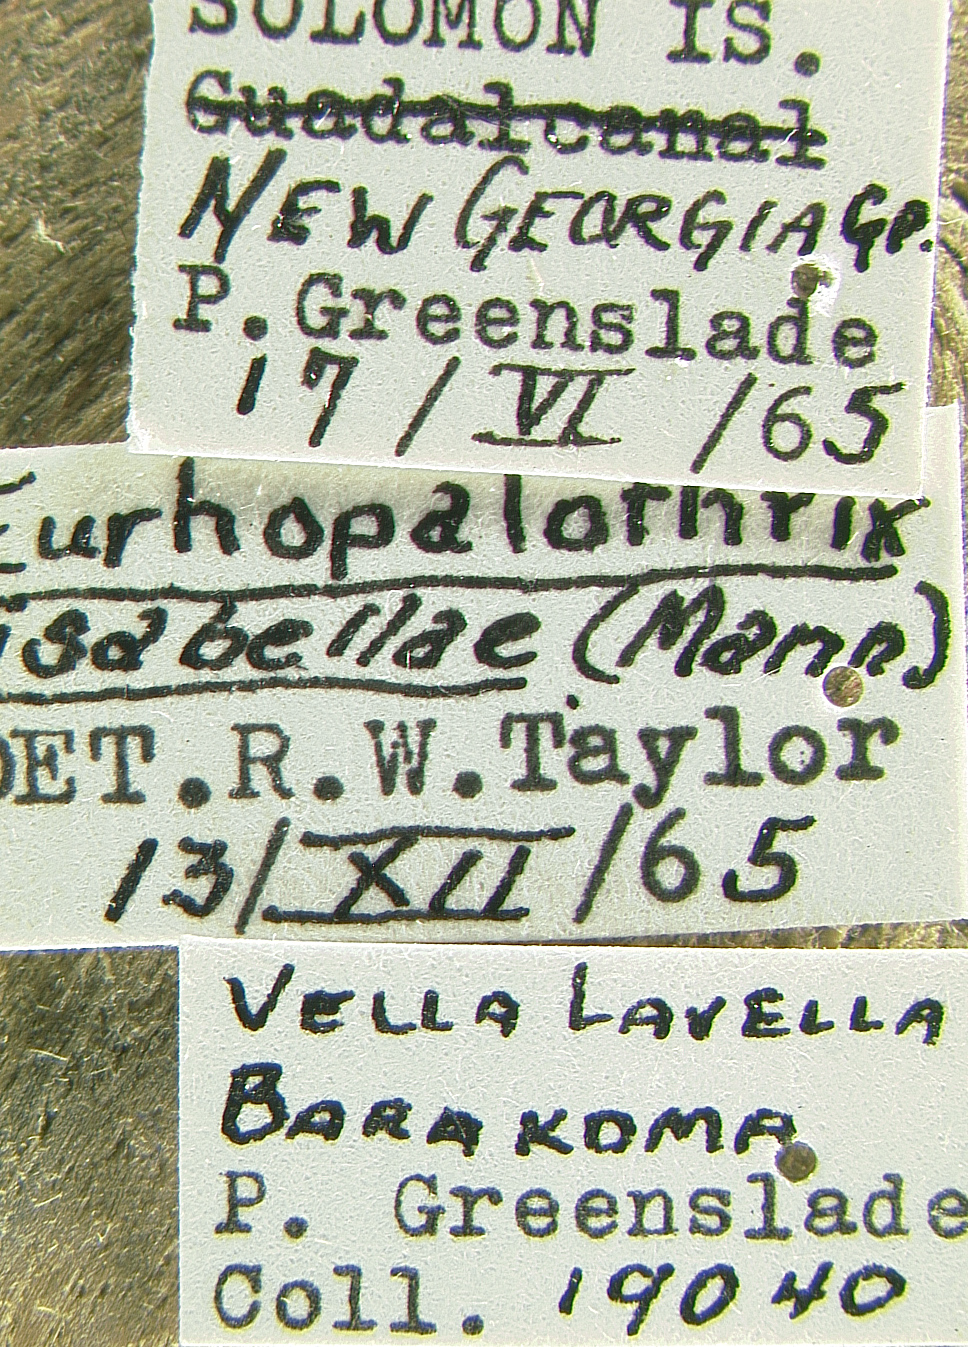 SOLOMON IS.
Guadalcanal
NEW GEORGIA GP.
P. Greenslade
17 / VI / 65
Eurhopalothrix
isabellae (Mann)
DET. R. W. Taylor
13 / XII / 65
VELLA LAVELLA
BARAKOMA
P. Greenslade
Coll. 19040